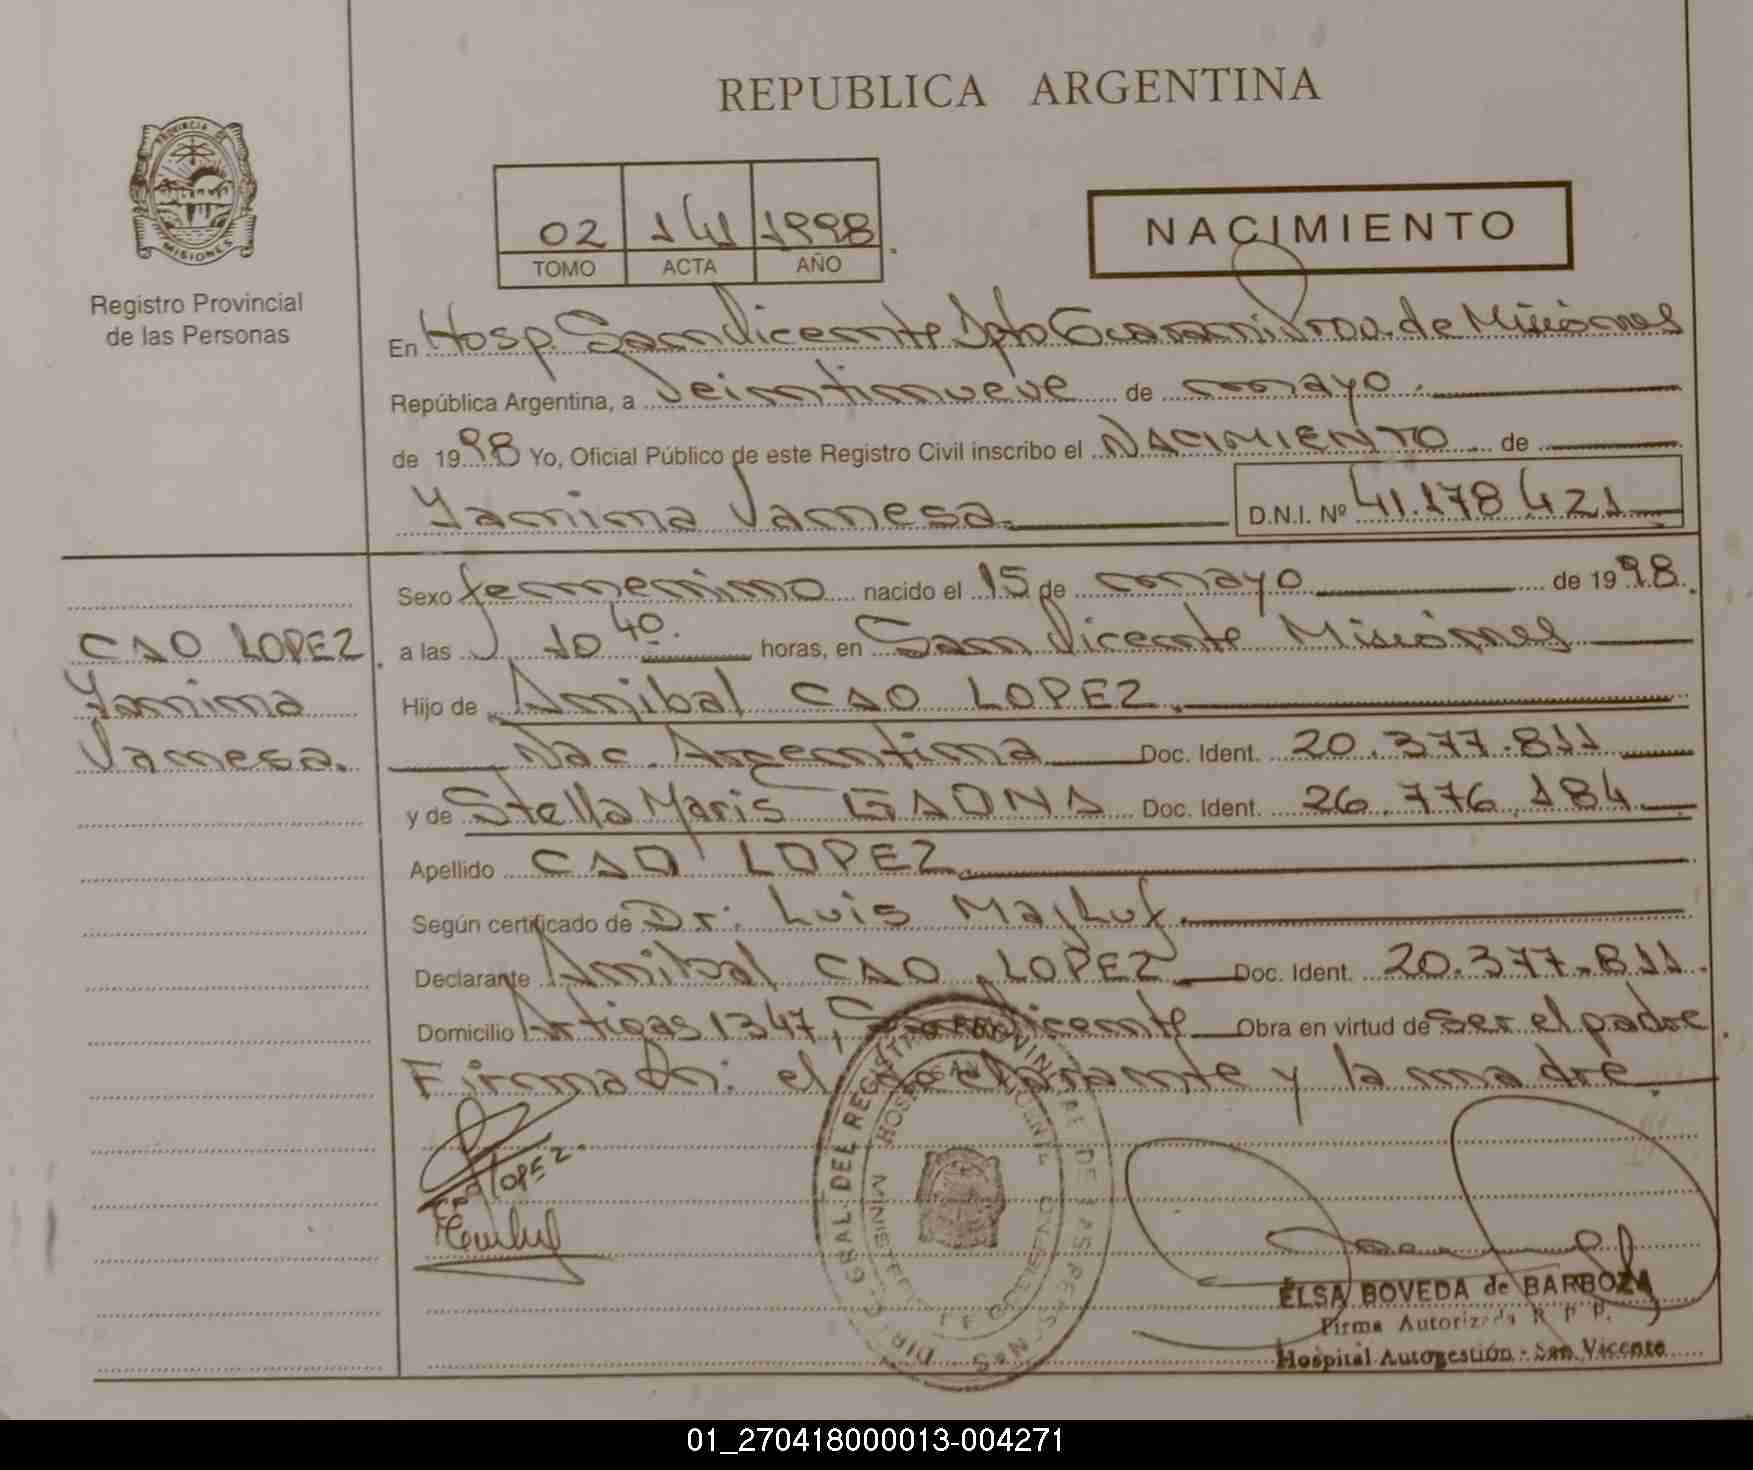 REPUBLICA ARGENTINA
PROVINCIA DE
MISIONES
Registro Provincial
de las Personas
02 141 1998
TOMO ACTA AÑO
NACIMIENTO
En Hosp. San Vicente Dpto Guarani Prov. de Misiones
República Argentina, a Veintinueve de mayo.
de 1998 Yo, Oficial Público de este Registro Civil inscribo el NACIMIENTO de
Yanina Vanesa. D.N.I. Nº 41.178421
Sexo femenino nacido el 15 de mayo de 1998.
CAO LOPEZ
Yanina
Vanesa.
a las 10 40. horas, en San Vicente Misiones
Hijo de Anibal CAO LOPEZ.
Nac. Argentina Doc. Ident. 20.377.811
y de Stella Maris GAONA Doc. Ident. 26.776.184
Apellido CAO LOPEZ
Según certificado de Dr: Luis Majluf.
Declarante Anibal CAO LOPEZ Doc. Ident. 20.377.811.
Domicilio Artigas 1347, San Vicente Obra en virtud de ser el padre
Firman: el declarante y la madre.
LOPEZ
DIR. GRAL. DEL REGISTRO PROVINCIAL DE LAS PERSONAS
HOSPITAL SAN VICENTE
MINISTERIO DE GOBIERNO
ELSA BOVEDA de BARBOZA
Firma Autorizada R P P.
Hospital Autogestión - San Vicente
01_270418000013-004271